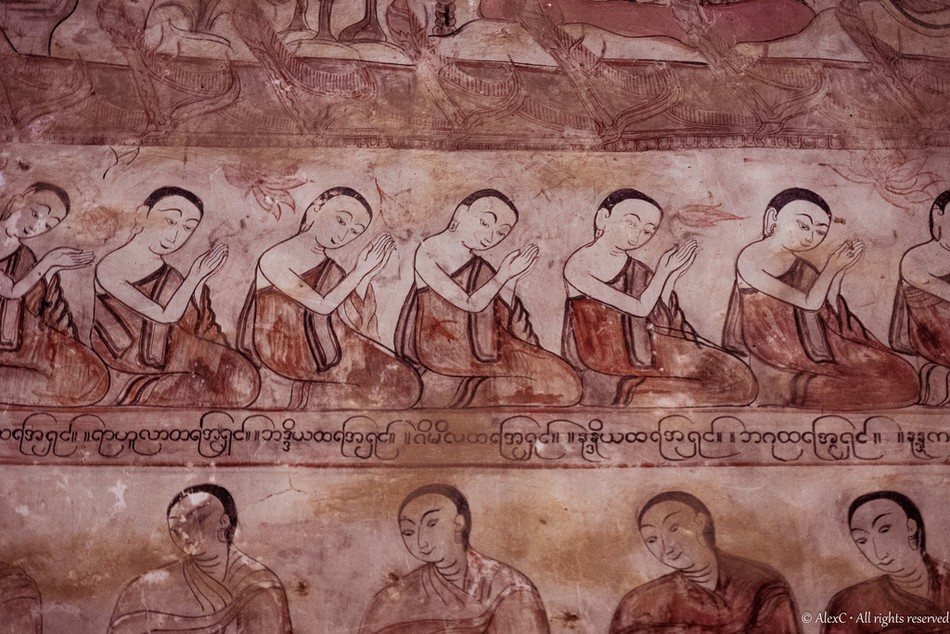 ထရအြရှင်။ ။ရာဟူလာထရအြရှင်။ ။ဘဒ္ဒိယထရအြရှင်။ ။ဂိမိလထရအြရှင်။ ။နန္ဒိယထရအြရှင်။ ။ဘဂုထရအြရှင်။ ။နန္ဒက
© AlexC · All rights reserved